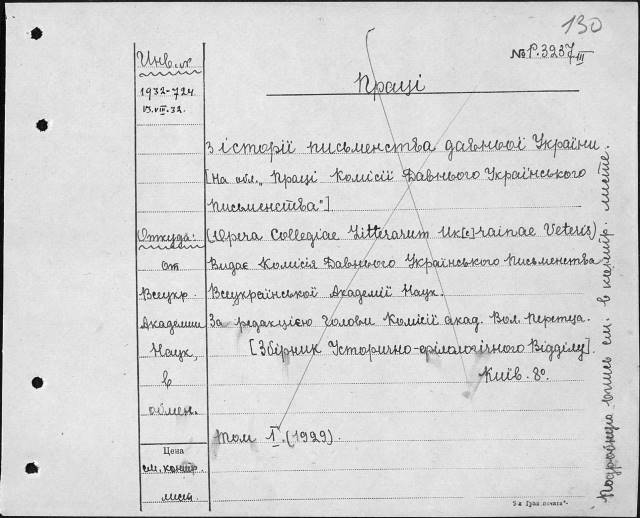 130
№ Р.3237 III
Праці
Инв. №
1932-724
13.VIII.32.
з історії письменства давньої України
[На обл. „Праці Комісії Давнього Українського
письменства"]
Откуда:
(Opera Collegiae Litterarum Uk[e]rainae Veteris).
от
Видає Комісія Давнього Українського письменства
Всеукр.
Всеукраїнської Академії Наук.
Академии
За редакцією Голови Комісії акад. Вол. Перетца.
Наук,
[Збірник Історично-філологічного Відділу].
в
Київ. 8°.
обмен.
том I. (1929).
Цена
см. канцир.
лист.
Подробную опись см. в канцир. листе.